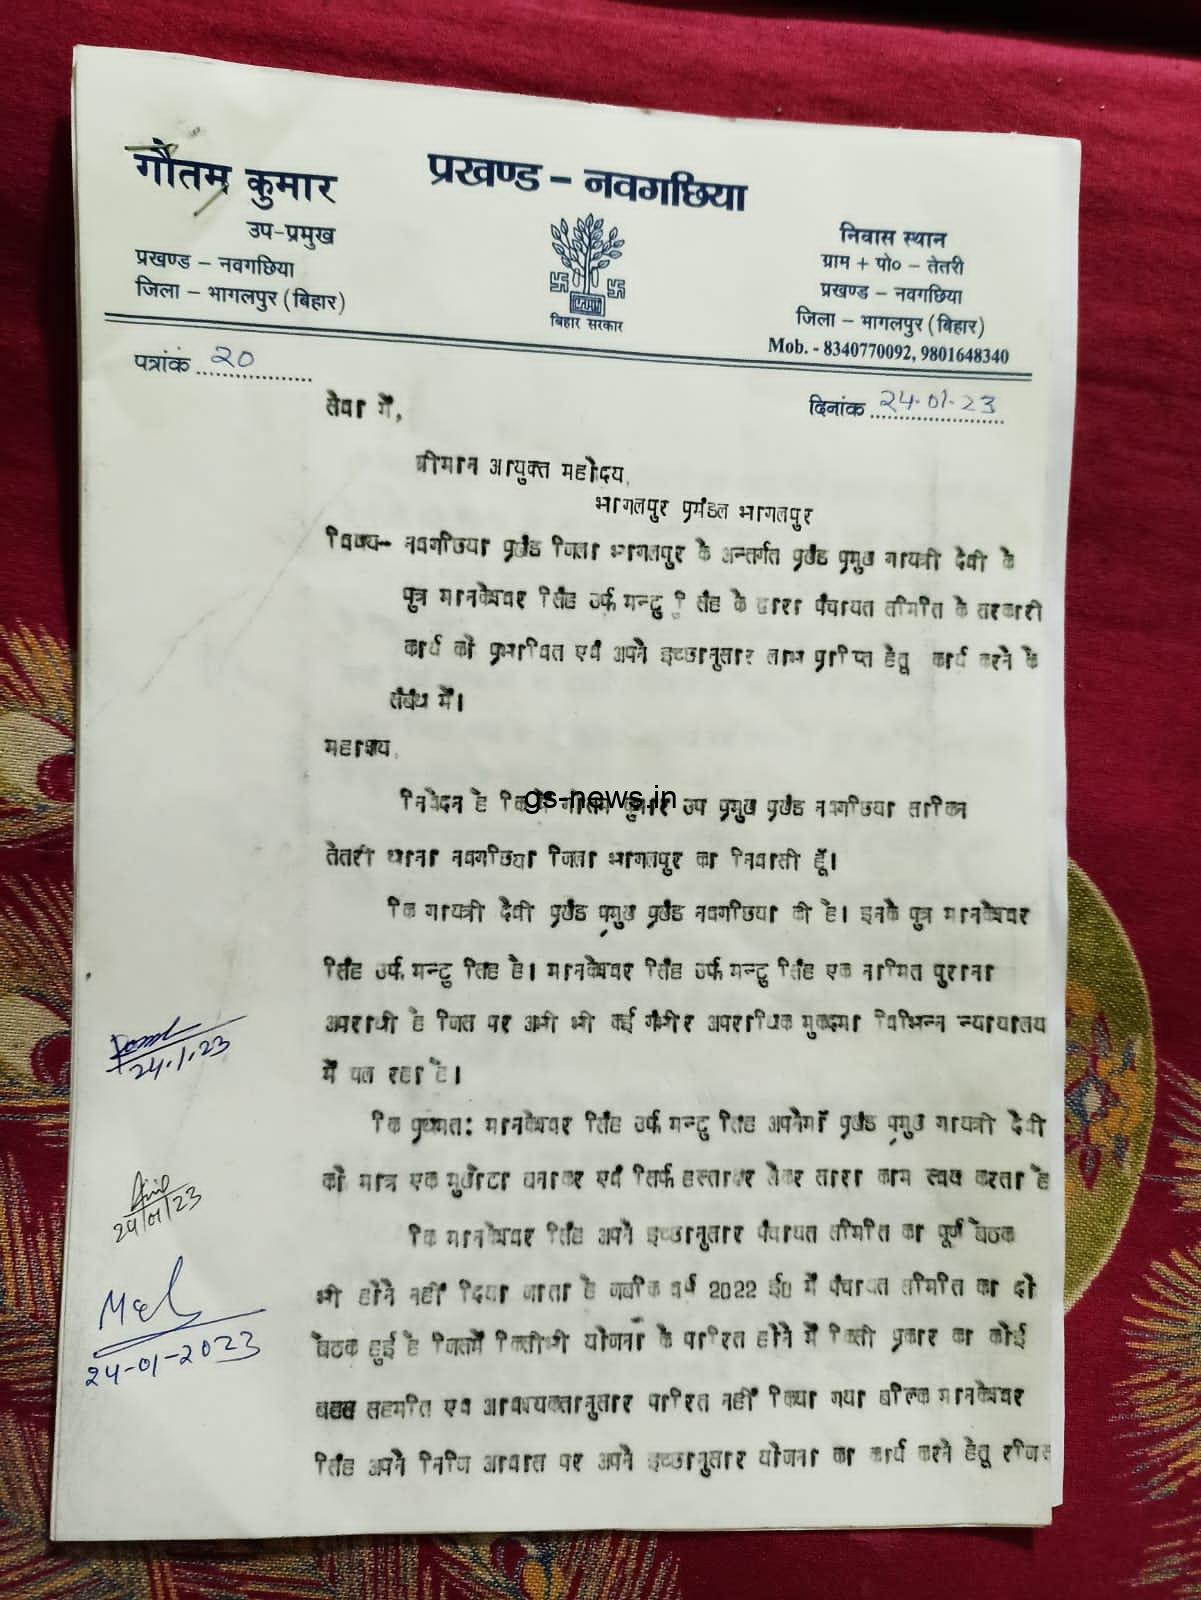 गौतम कुमार
उप-प्रमुख
प्रखण्ड – नवगछिया
जिला – भागलपुर (बिहार)
प्रखण्ड – नवगछिया
बिहार सरकार
निवास स्थान
ग्राम + पो० – तेतरी
प्रखण्ड – नवगछिया
जिला – भागलपुर (बिहार)
Mob. - 8340770092, 9801648340
पत्रांक 20
दिनांक 24-01-23
सेवा में,
श्रीमान आयुक्त महोदय,
भागलपुर प्रमंडल भागलपुर
विषय- नवगछिया प्रखंड जिला भागलपुर के अन्तर्गत प्रखंड प्रमुख गायत्री देवी के
पुत्र मानकेश्वर सिंह उर्फ मन्टु सिंह के द्वारा पंचायत समिति के सरकारी
कार्य को प्रभावित एवं अपने इच्छानुसार लाभ प्राप्ति हेतू कार्य करने के
संबंध में।
महाशय,
निवेदन है कि मैं गौतम कुमार उप प्रमुख प्रखंड नवगछिया साकिन
gs-news.in
तेतरी थाना नवगछिया जिला भागलपुर का निवासी हूँ।
कि गायत्री देवी प्रखंड प्रमुख प्रखंड नवगछिया की है। इनके पुत्र मानकेश्वर
सिंह उर्फ मन्टु सिंह है। मानकेश्वर सिंह उर्फ मन्टु सिंह एक नामित पुराना
अपराधी है जिस पर अभी भी कई गंभीर अपराधिक मुकदमा विभिन्न न्यायालय
में चल रहा है।
कि प्रथमत: मानकेश्वर सिंह उर्फ मन्टु सिंह अपनेमाँ प्रखंड प्रमुख गायत्री देवी
को मात्र एक मुखौटा बनाकर एवं सिर्फ हस्ताक्षर लेकर सारा काम स्वयं करता है
कि मानकेश्वर सिंह अपने इच्छानुसार पंचायत समिति का पूर्ण बैठक
भी होने नहीं दिया जाता है जबकि वर्ष 2022 ई0 में पंचायत समिति का दो
बैठक हुई है जिसमें किसीभी योजना के पारित होने में किसी प्रकार का कोई
बहस सहमति एव आवश्यक्तानुसार पारित नहीं किया गया बल्कि मानकेश्वर
सिंह अपने निजि आवास पर अपने इच्छानुसार योजना का कार्य करने हेतू
24.1.23
24/01/23
24-01-2023